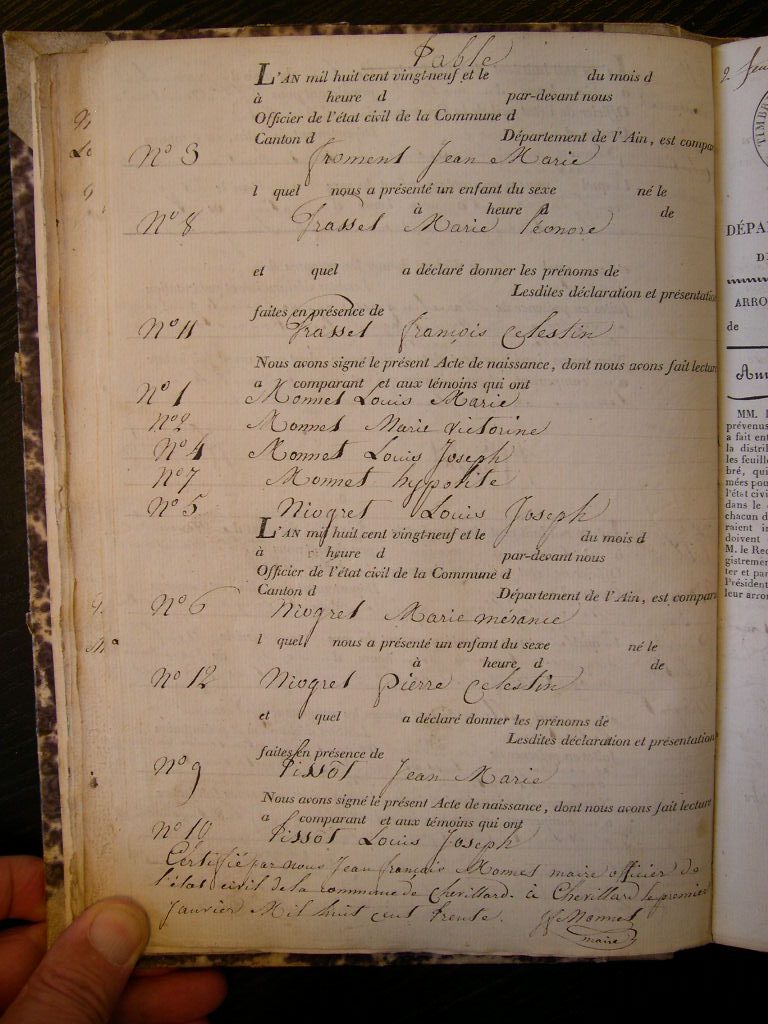 Table
L'AN mil huit cent vingt-neuf et le du mois d
à heure d par-devant nous
Officier de l'état civil de la Commune d
Canton d Département de l'Ain, est compar
N° 3 froment Jean Marie
l quel nous a présenté un enfant du sexe né le
à heure d de
N° 8 frassel Marie léonore
et quel a déclaré donner les prénoms de
Lesdites déclaration et présentation
faites en présence de
N° 11 frassel françois Celestin
Nous avons signé le présent Acte de naissance, dont nous avons fait lecture
a comparant et aux témoins qui ont
N° 1 Monnet Louis Marie
N° 2 Monnet Marie victorine
N° 4 Monnet Louis Joseph
N° 7 Monnet hypolite
N° 5 Niogret Louis Joseph
L'AN mil huit cent vingt-neuf et le du mois d
à heure d par-devant nous
Officier de l'état civil de la Commune d
Canton d Département de l'Ain, est compar
N° 6 Niogret Marie mérance
l quel nous a présenté un enfant du sexe né le
à heure d de
N° 12 Niogret pierre Celestin
et quel a déclaré donner les prénoms de
Lesdites déclaration et présentation
faites en présence de
N° 9 Pissot Jean Marie
Nous avons signé le présent Acte de naissance, dont nous avons fait lecture
a comparant et aux témoins qui ont
N° 10 Pissot Louis Joseph
Certifié par nous Jean françois Monnet maire officier de
l'état civil de la commune de Chevillard. à Chevillard le premier
Janvier Mil huit cent trente. Jf Monnet
maire
TIMBRE
DÉPA
D
ARRO
de
Ann
MM. l
prévenus
a fait ent
la distril
les feuille
bré, qui
mées pou
l'état civi
dans le
chacun d
raient in
doivent
M. le Rec
gistremen
ter et par
Président
leur arron